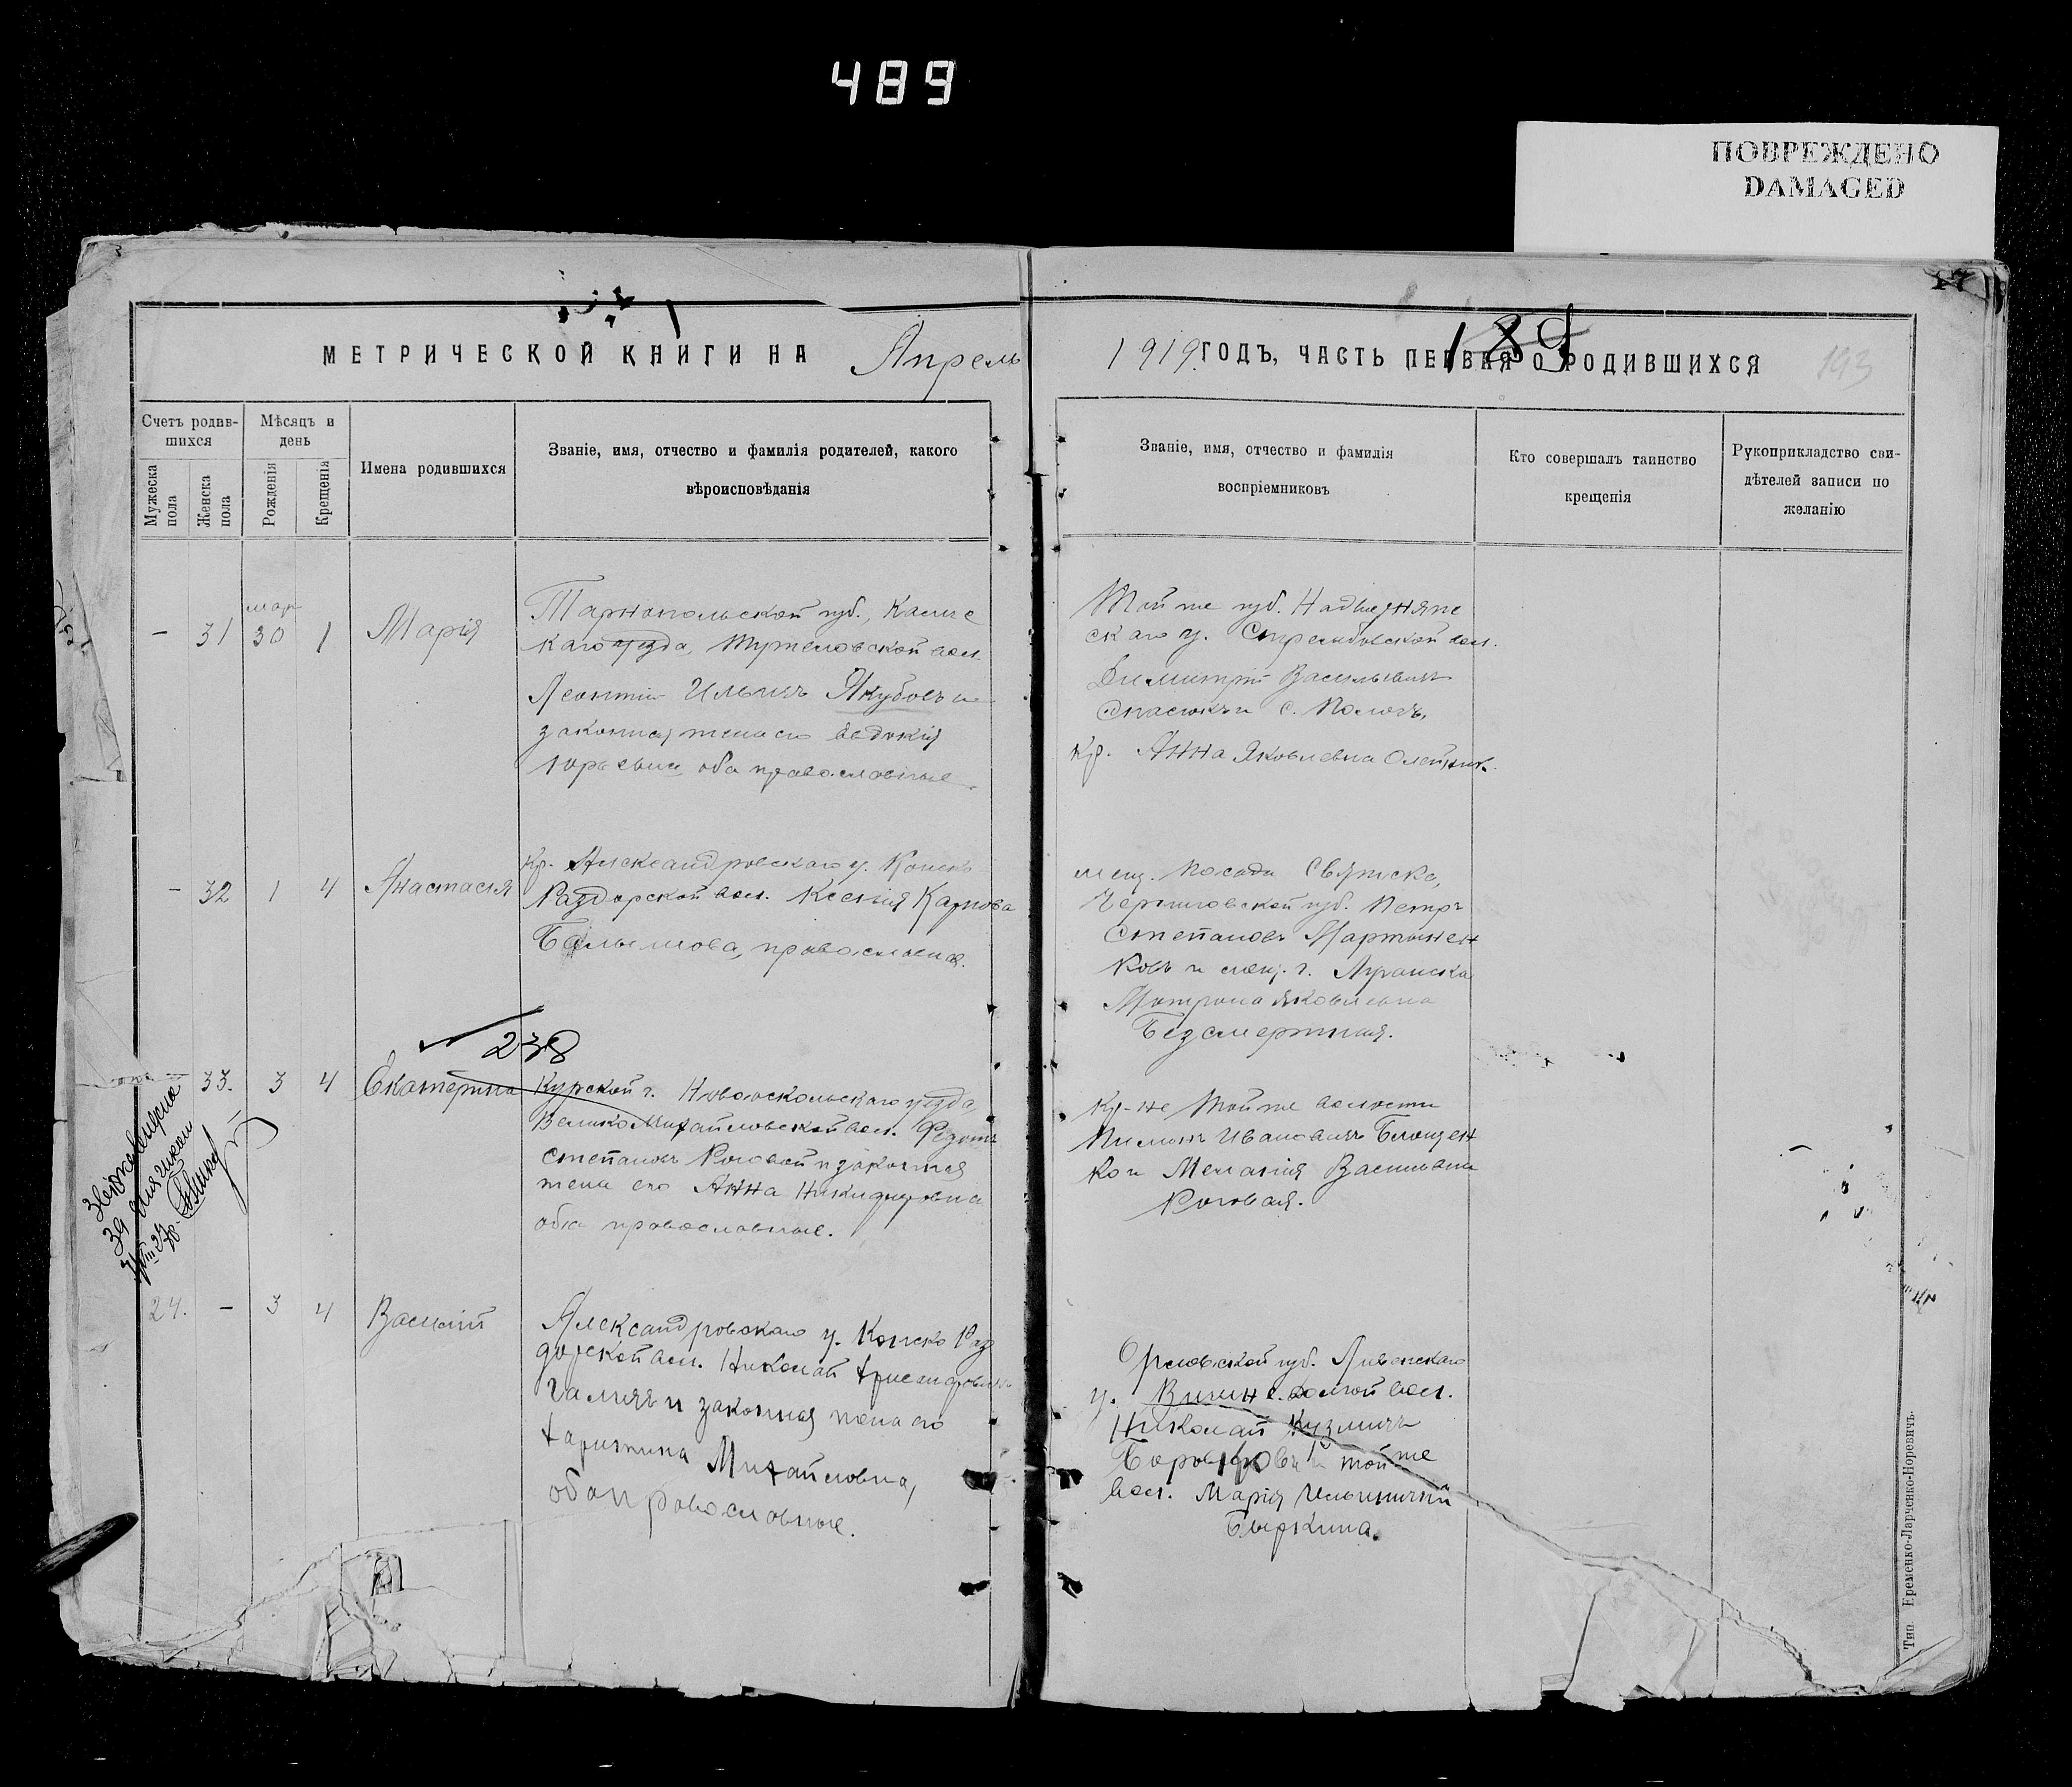 489
ПОВРЕЖДЕНО
DAMAGED
17
189
193
МЕТРИЧЕСКОЙ КНИГИ НА Апрель 1919 ГОДЪ, ЧАСТЬ ПЕРВАЯ О РОДИВШИХСЯ
Счетъ родив-
шихся
Мужеска
пола
Женска
пола
Мѣсяцъ и
день
Рожденія
Крещенія
Имена родившихся
Званіе, имя, отчество и фамилія родителей, какого
вѣроисповѣданія
Званіе, имя, отчество и фамилія
воспріемниковъ
Кто совершалъ таинство
крещенія
Рукоприкладство сви-
дѣтелей записи по
желанію
— 31 мар 30 1 Марія
Тарнопольской губ.,
каго уѣзда, вол.
Леонтій Ильичъ Якубовъ и
законная жена его Евдокія
Юрьевна оба православные.
Той же губ.
скаго у. вол.
Димитрій Васильевичъ
и с. Пологъ,
кр. Анна Яковлевна Олейник.
— 32 1 4 Анастасія
Кр. Александровскаго у. Конско
Раздорской вол. Ксенія Карпова
православная.
мещ. посада Свяцка,
Черниговской губ. Петръ
Степановъ Мартынен
ковъ и мещ. г. Луганска
Матрона Яковлевна
Безсмертная.
238
— 33. 3 4 Екатерина
Курской г. Новооскольскаго уезда,
Велико Михайловской вол.
Степановъ Роговой и законная
жена его Анна Никифоровна
оба православные.
Кр-не той же волости
Пименъ Ивановичъ
ко и Меланія Васильевна
Роговая.
24. — 3 4 Василій
Александровскаго у. Конско Раз
дорской вол. Николай
и законная жена его
Харитина Михайловна,
оба православные.
Орловской губ. Ливенскаго
у. вол.
Николай Кузмичъ
и той же
вол. Марія Ильинична
Быркина.
Тип. Еременко-Ларченко-Норевичъ.